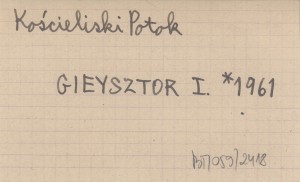 Kościeliski Potok
GIEYSZTOR I. *1961
BП/059/2418